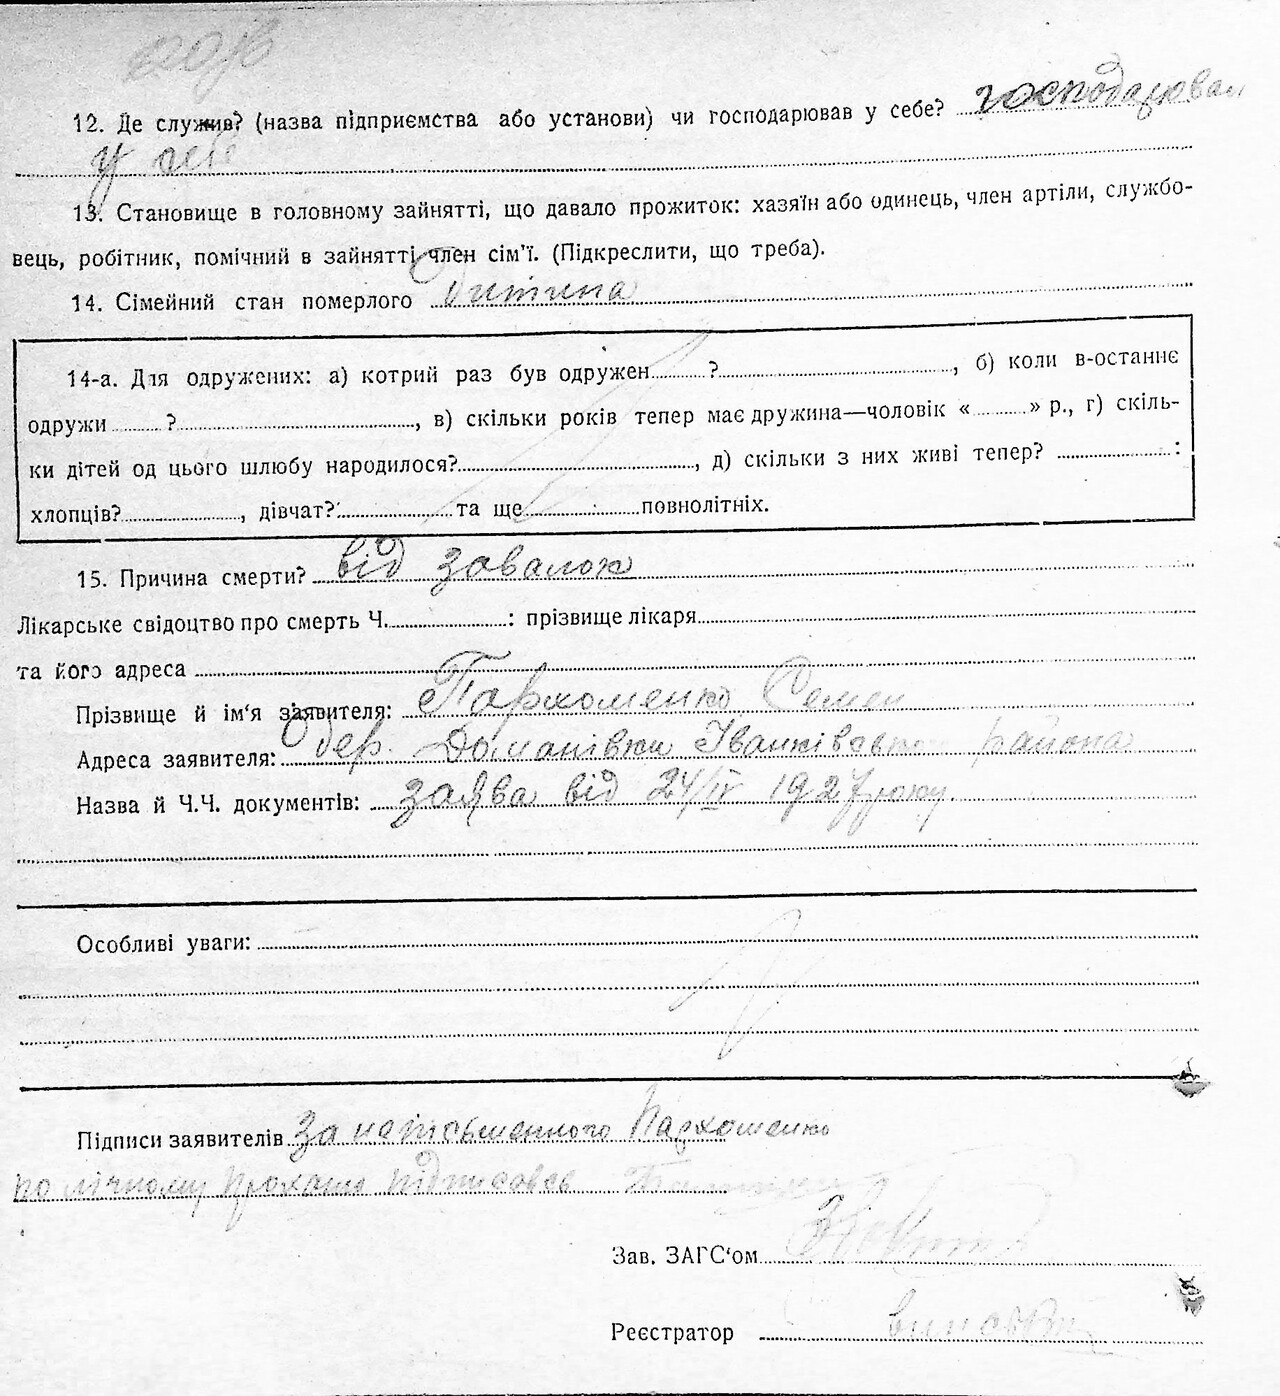 12. Де служив? (назва підприємства або установи) чи господарював у себе? господарював
у себе
13. Становище в головному зайнятті, що давало прожиток: хазяїн або одинець, член артіли, службо-
вець, робітник, помічний в зайнятті член сім'ї. (Підкреслити, що треба).
14. Сімейний стан померлого дитина
14-а. Для одружених: а) котрий раз був одружен ? , б) коли в-останнє
одружи ? , в) скільки років тепер має дружина—чоловік « » р., г) скіль-
ки дітей од цього шлюбу народилося? , д) скільки з них живі тепер? :
хлопців? , дівчат? та ще повнолітніх.
15. Причина смерти? від завалок
Лікарське свідоцтво про смерть Ч. : прізвище лікаря
та його адреса
Прізвище й ім'я заявителя: Пархоменко Семен
Адреса заявителя: дер. Доманівки Іванківского района
Назва й Ч.Ч. документів: заява від 24/IV 1927 року
Особливі уваги:
Підписи заявителів За неписьменного Пархоменко
по лічному проханю підписовсь
Зав. ЗАГС'ом
Реєстратор